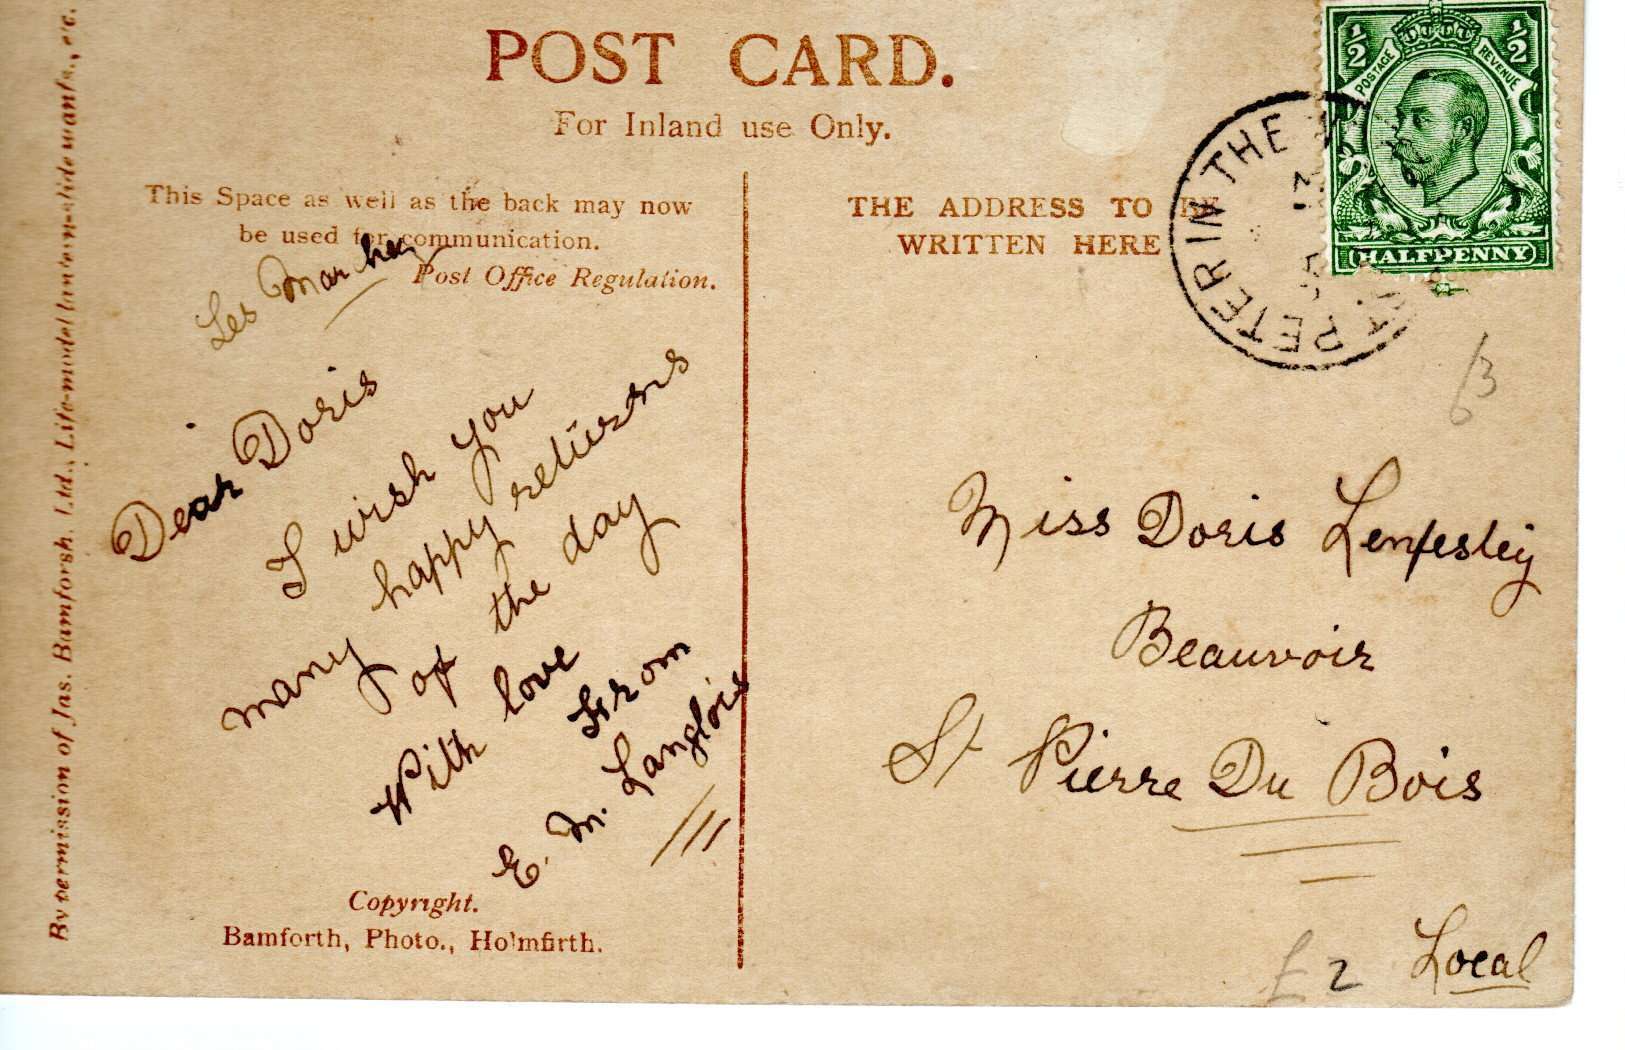 POST CARD.
For Inland use Only.
This Space as well as the back may now
be used for communication.
Post Office Regulation.
Les
Dear Doris
I wish you
many happy returns
of the day
With love
From
E. M. Langlois
Copyright.
Bamforth, Photo., Holmfirth.
By permission of Jas. Bamforsh, Ltd., Life-model lantern-slide wants., etc.
THE ADDRESS TO BE
WRITTEN HERE
PETER IN THE
½ ½
POSTAGE REVENUE
HALFPENNY
Miss Doris Lenfestey
Beauvoir
St Pierre Du Bois
Local
£2